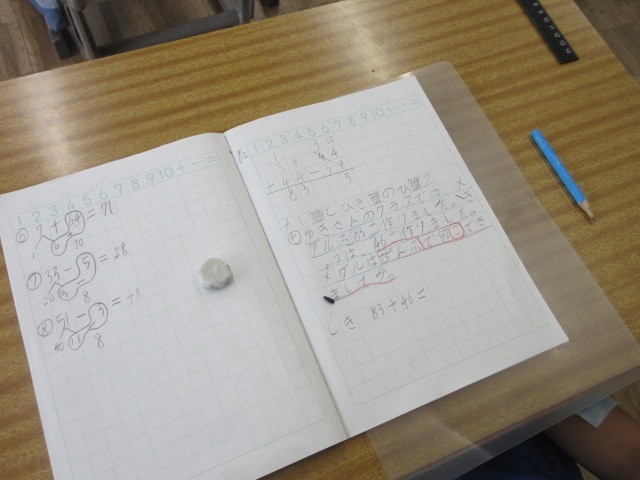 1 2 3 4 5 6 7 8 9 10 + − =
⑥ 7 + 64 = 71
1 6 70
⑦ 33 − 5 = 28
20 8
⑧ 51 − 3 =
40 11 8
1 2 3 4 5 6 7 8 9 10 + − =
3 10
4 4 − 3 9
8 3 5
たし算とひき算のひっ算2
ゆきさんのクラスでは、メ
ダルを83こ作りました。
46こ作りました。
メダルはぜんぶで何こでき
ましたか。
しき 83+46=